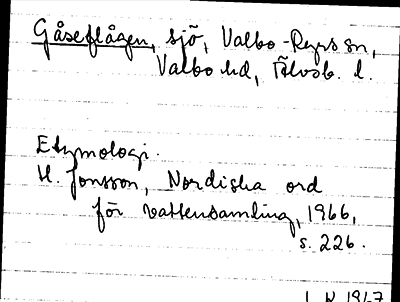 Gåseflågen, sjö, Valbo-Ryrs sn,
Valbo hd, Älvsb. l.
Etymologi.
H. Jonsson, Nordiska ord
för vattensamling, 1966,
s. 226.